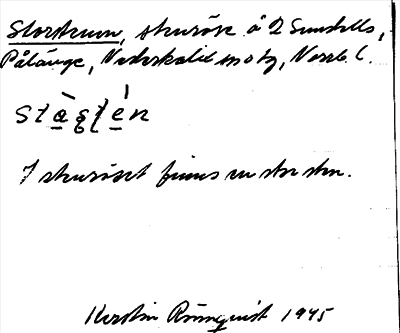 Storstenen, stenröse å 2 Sundells,
Pålänge, Nederkalix sn o tg, Norrb. l.
stàg̱ṣtén
I stenröset finns en stor sten.
Kerstin Rönnqvist 1945